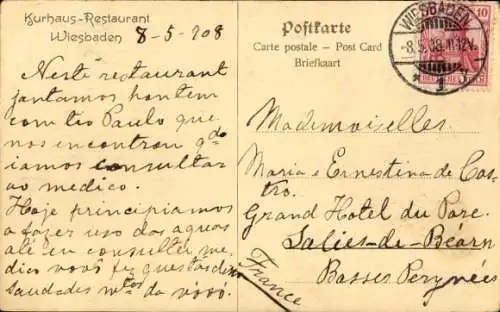 Kurhaus-Restaurant
Wiesbaden
8-5-208
Neste restaurant
jantamos hontem
com tio Paulo que
nos encontrou qdo
iamos consultar
ao medico.
Hoje principiamos
a fazer uso das aguas
até eu consultei me
dico vovó fez questão
Saudades mtas da vovó.
Postkarte
Carte postale - Post Card
Briefkaart
WIESBADEN
8.5.08.11-12V.
* 1
10
Mademoiselles
Maria e Ernestina de Cas-
tro.
Grand Hotel du Parc
Salies-de-Béarn
Basses Perynées
France